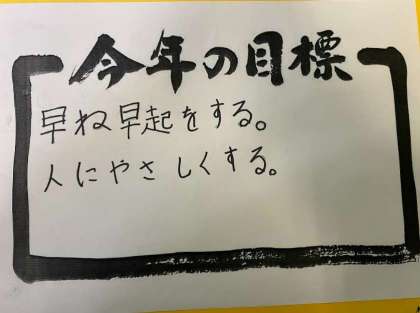 今年の目標
早ね早起をする。
人にやさしくする。